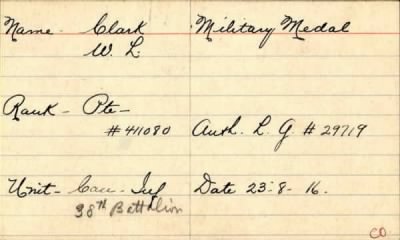 Name - Clark Military Medal
W. L.
Rank - Pte -
# 411080 Auth. L. G # 29719
Unit - Can - Inf Date 23-8-16.
38th Battalion
CD